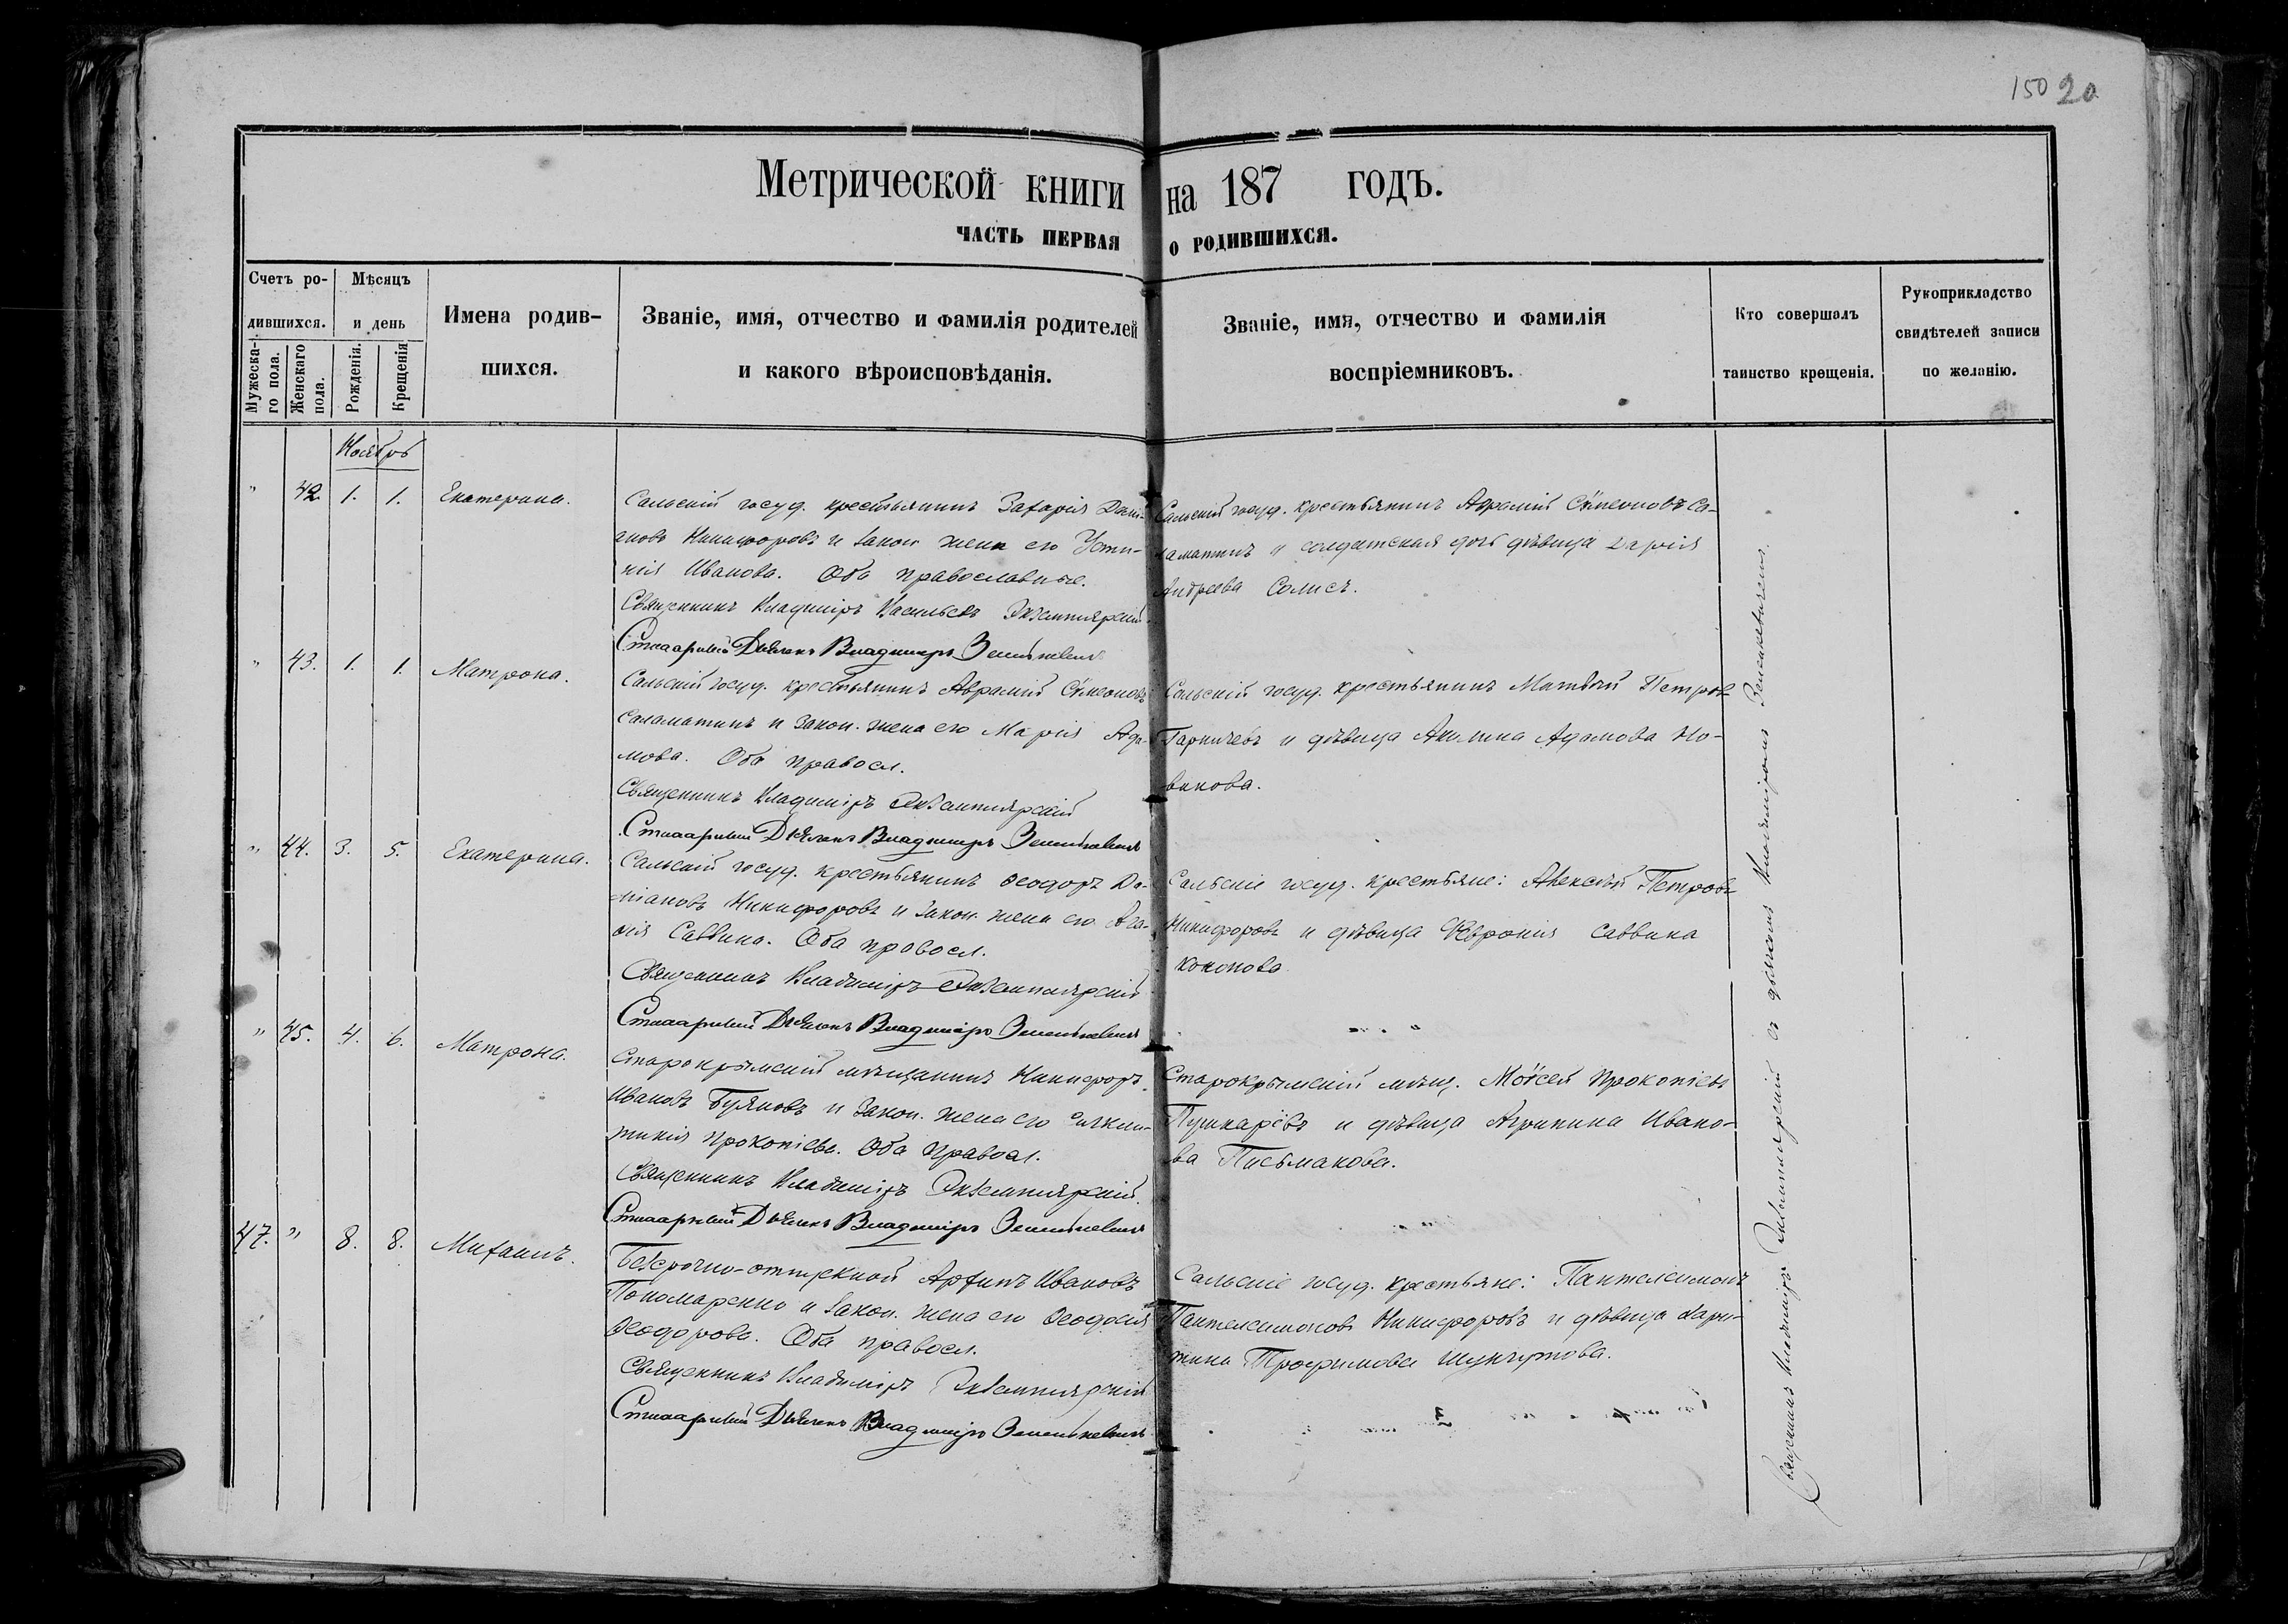 150 20
Метрической книги на 187 годъ.
ЧАСТЬ ПЕРВАЯ О РОДИВШИХСЯ.
Счетъ ро-
дившихся.
Мужеска-
го пола.
Женскаго
пола.
Мѣсяцъ
и день
Рожденія.
Крещенія
Имена родив-
шихся.
Званіе, имя, отчество и фамилія родителей
и какого вѣроисповѣданія.
Званіе, имя, отчество и фамилія
воспріемниковъ.
Кто совершалъ
таинство крещенія.
Рукоприкладство
свидѣтелей записи
по желанію.
Ноябрь
" 42 1. 1. Екатерина.
Сальскій госуд. крестьянинъ Захарія Дамі-
ановъ Никифоровъ и закон. жена его Усти-
нія Иванова. Оба православные.
Священникъ Владиміръ Васильевъ Экземплярскій
Дьяконъ Владимиръ
Сальскій госуд. крестьянинъ Аврамій Сѵмеоновъ Са-
ламатинъ и солдатская дочь дѣвица Дарія
Андреева
" 43. 1. 1. Матрона.
Сальскій госуд. крестьянинъ Аврамій Сѵмеоновъ
Саламатинъ и закон. жена его Марія Ада-
мова. Оба правосл.
Священникъ Владиміръ Экземплярскій
Дьяконъ Владимиръ
Сальскій госуд. крестьянинъ Матвѣй Петровъ
и дѣвица Акилина Адамова Но-
викова.
" 44. 3. 5. Екатерина.
Сальскій госуд. крестьянинъ Ѳеодоръ Да-
міановъ Никифоровъ и закон. жена его Ага-
ѳія Саввина. Оба правосл.
Священникъ Владиміръ Экземплярскій
Дьяконъ Владиміръ
Сальскіе госуд. крестьяне: Алексѣй Петровъ
Никифоровъ и дѣвица Февронія Саввина
Кононова
" 45. 4. 6. Матрона.
Старокрымскій мѣщанинъ Никифоръ
Ивановъ Буяновъ и закон. жена его
Прокопіева. Оба правосл.
Священникъ Владиміръ Экземплярскій.
Дьяконъ Владиміръ
Старокрымскій мѣщ. Моѵсей Прокопіевъ
Пушкарёвъ и дѣвица Агрипина Ивано-
ва Письмакова.
47. " 8. 8. Михаилъ.
Безсрочно-отпускной Архипъ Ивановъ
Пономаренко и закон. жена его Ѳеодосія
Ѳеодорова. Оба правосл.
Священникъ Владиміръ Экземплярскій
Дьяконъ Владиміръ
Сальскіе госуд. крестьяне: Пантелеимонъ
Пантелеимоновъ Никифоровъ и дѣвица Хари-
тина Трофимова
Священникъ Владиміръ Экземплярскій съ